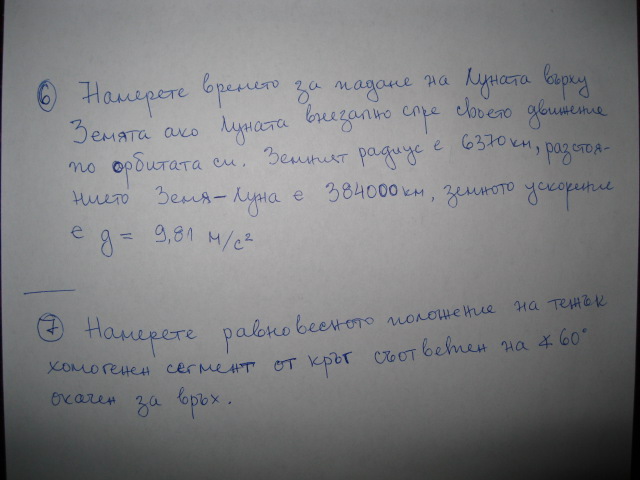 ⑥ Намерете времето за падане на Луната върху
Земята ако Луната внезапно спре своето движение
по орбитата си. Земният радиус е 6370 км, разстоя-
нието Земя-Луна е 384000 км, земното ускорение
е g = 9,81 м/с²
⑦ Намерете равновесното положение на тежък
хомогенен сегмент от кръг съответен на ∢ 60°
окачен за връх.